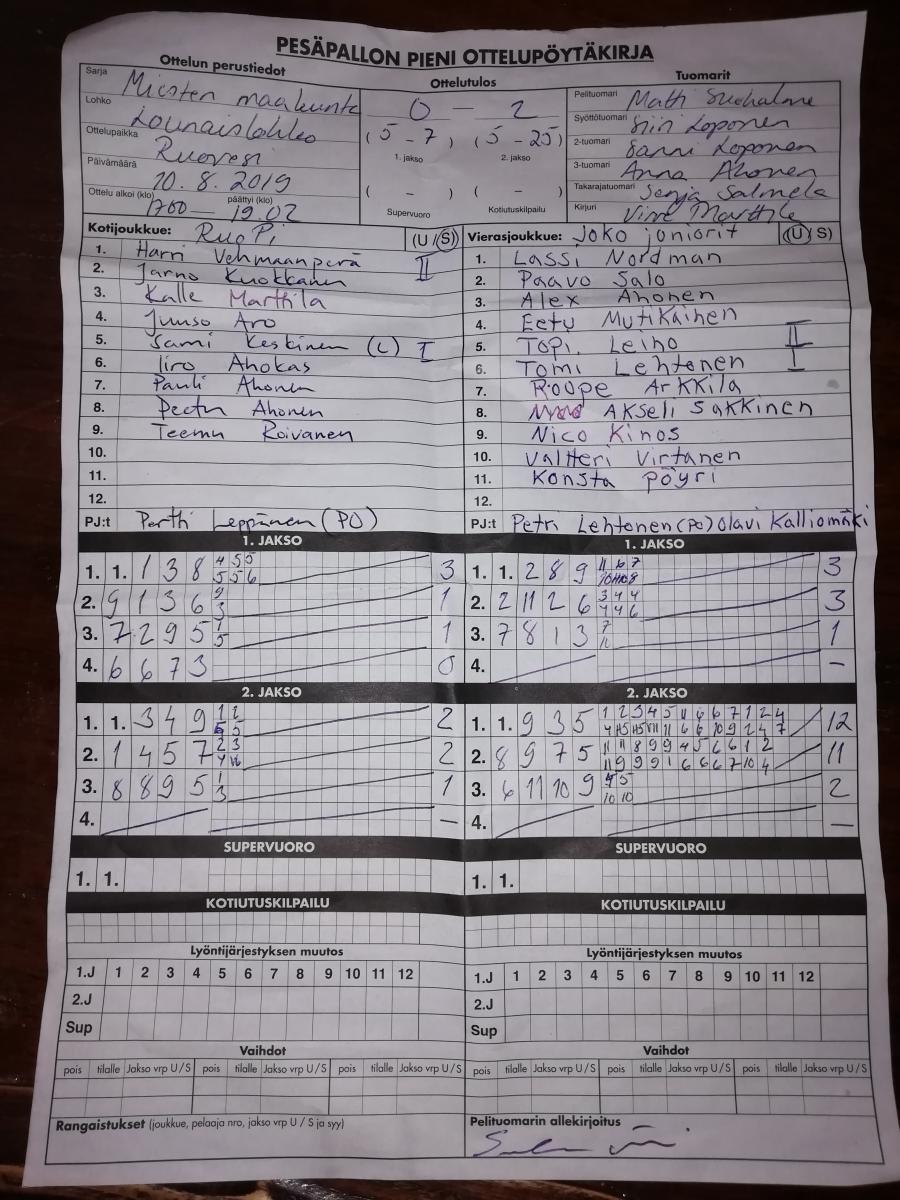 PESÄPALLON PIENI OTTELUPÖYTÄKIRJA
Ottelun perustiedot
Ottelutulos
Tuomarit
Sarja Miesten maakunta
Lohko Lounaislohko
Ottelupaikka Ruovesi
Päivämäärä 10.8.2019
Ottelu alkoi (klo) 1700 — päättyi (klo) 19.02
0 — 2
(5 - 7) (5 - 25)
1. jakso 2. jakso
( - ) ( - )
Supervuoro Kotiutuskilpailu
Pelituomari Matti
Syöttötuomari Siiri Loponen
2-tuomari Sanni Loponen
3-tuomari Anna Ahonen
Takarajatuomari Senja Salmela
Kirjuri Marttila
Kotijoukkue: RuoPi (U/S)
1. Harri Vehmaanperä II
2. Jarno Kuokkanen
3. Kalle Marttila
4. Juuso Aro
5. Sami Keskinen (L) I
6. Iiro Ahokas
7. Pauli Ahonen
8. Peetu Ahonen
9. Teemu Roivanen
10.
11.
12.
PJ:t Pertti Leppänen (PO)
Vierasjoukkue: Joko juniorit (U/S)
1. Lassi Nordman
2. Paavo Salo
3. Alex Ahonen
4. Eetu Mutikainen
5. Topi Leiho II
6. Tomi Lehtonen I
7. Roope Arkkila
8. Akseli Sakkinen
9. Nico Kinos
10. Valtteri Virtanen
11. Konsta Pöyri
12.
PJ:t Petri Lehtonen (PO) Olavi Kalliomäki
1. JAKSO
1. 1. 1 3 8 4 5 5 3
5 5 6
2. 9 1 3 6 9 1
3
3. 7 2 9 5 1 1
5
4. 6 6 7 3 0
1. JAKSO
1. 1. 2 8 9 11 6 7 3
2. 2 11 2 6 3 4 4 3
4 4 6
3. 7 8 1 3 7 1
11
4. —
2. JAKSO
1. 1. 3 4 9 1 2 2
5 5
2. 1 4 5 7 2 3 2
3. 8 8 9 5 1 1
3
4. —
2. JAKSO
1. 1. 9 3 5 1 2 3 4 5 11 6 6 7 1 2 4 12
2. 8 9 7 5 11 11 8 9 9 4 5 6 6 1 2 11
11 9 9 9 1 6 6 6 7 10 4
3. 6 11 10 9 4 5 2
10 10
4. —
SUPERVUORO
1. 1.
SUPERVUORO
1. 1.
KOTIUTUSKILPAILU
KOTIUTUSKILPAILU
Lyöntijärjestyksen muutos
1.J 1 2 3 4 5 6 7 8 9 10 11 12
2.J
Sup
Lyöntijärjestyksen muutos
1.J 1 2 3 4 5 6 7 8 9 10 11 12
2.J
Sup
Vaihdot
pois tilalle Jakso vrp U/S pois tilalle Jakso vrp U/S pois tilalle Jakso vrp U/S
Vaihdot
pois tilalle Jakso vrp U/S pois tilalle Jakso vrp U/S pois tilalle Jakso vrp U/S
Rangaistukset (joukkue, pelaaja nro, jakso vrp U / S ja syy)
Pelituomarin allekirjoitus